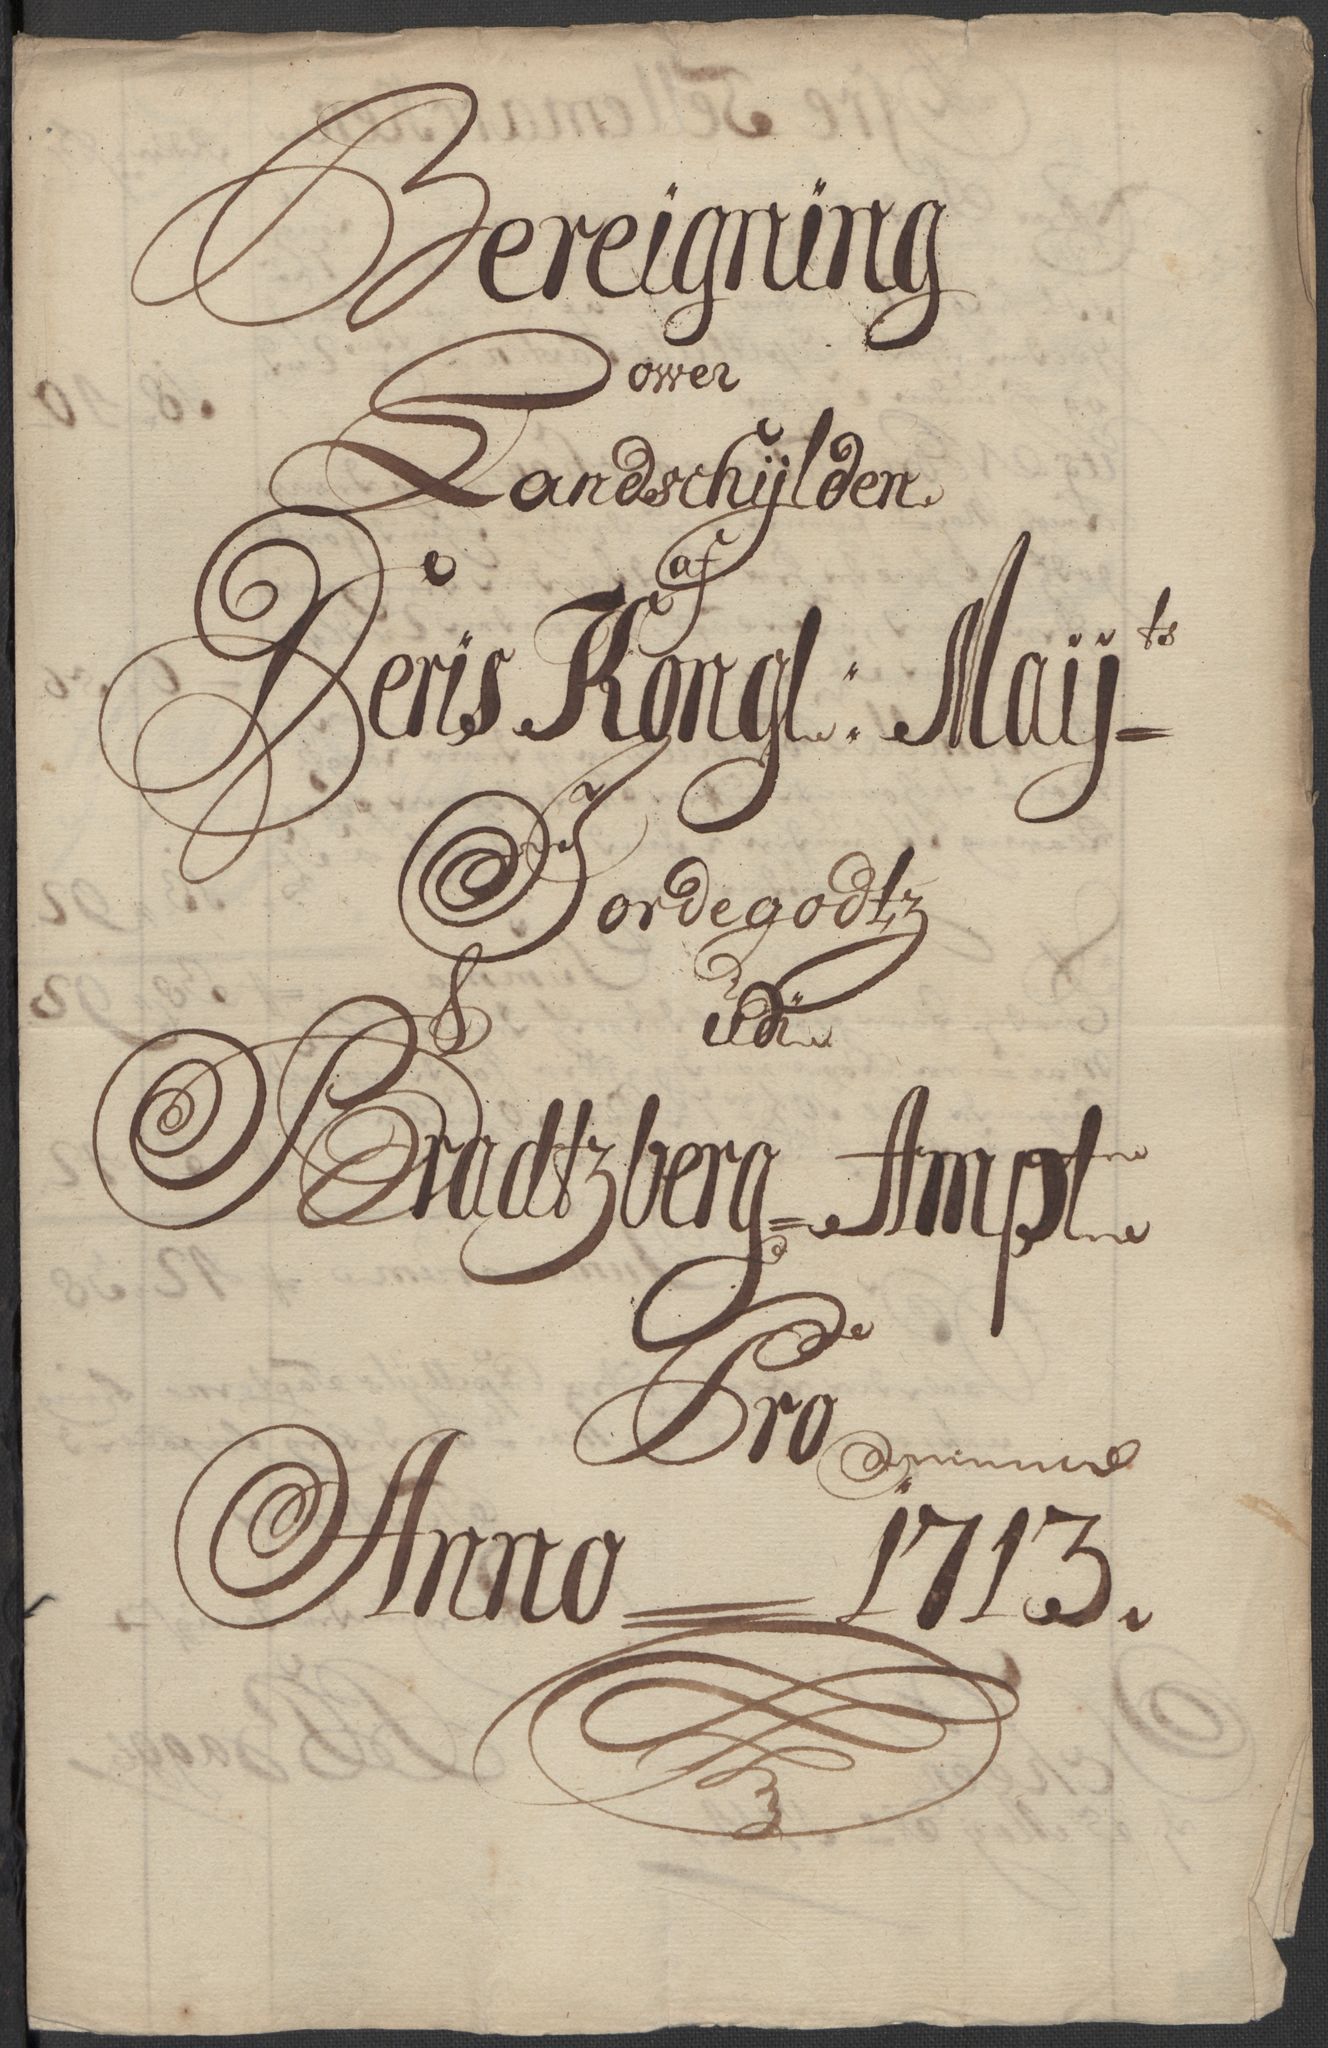 Bereigning
ower
Landschÿlden
af
Deris Kongl: Maij=ts
Jordegodtz
udi
Bradtzberg=Ampt
Pro
Anno 1713.